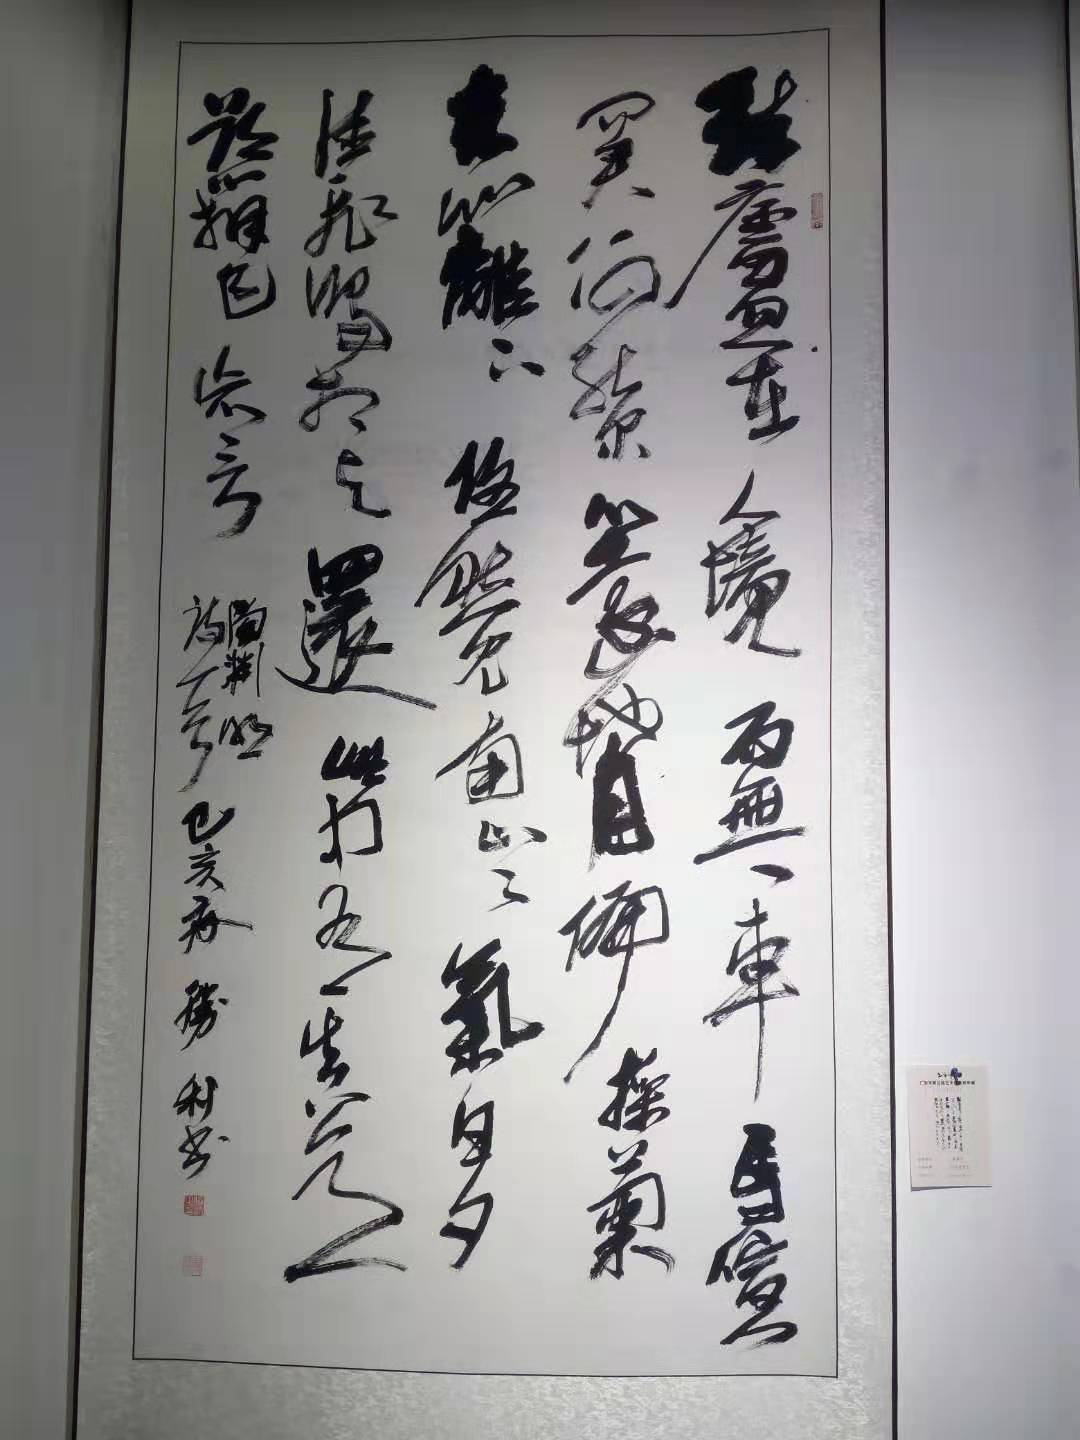 結廬在人境而無車馬喧
問君何能爾心遠地自偏採菊
東籬下悠然見南山山氣日夕
佳飛鳥相與還此中有真意
欲辯已忘言
陶淵明
詩一首己亥勝利书